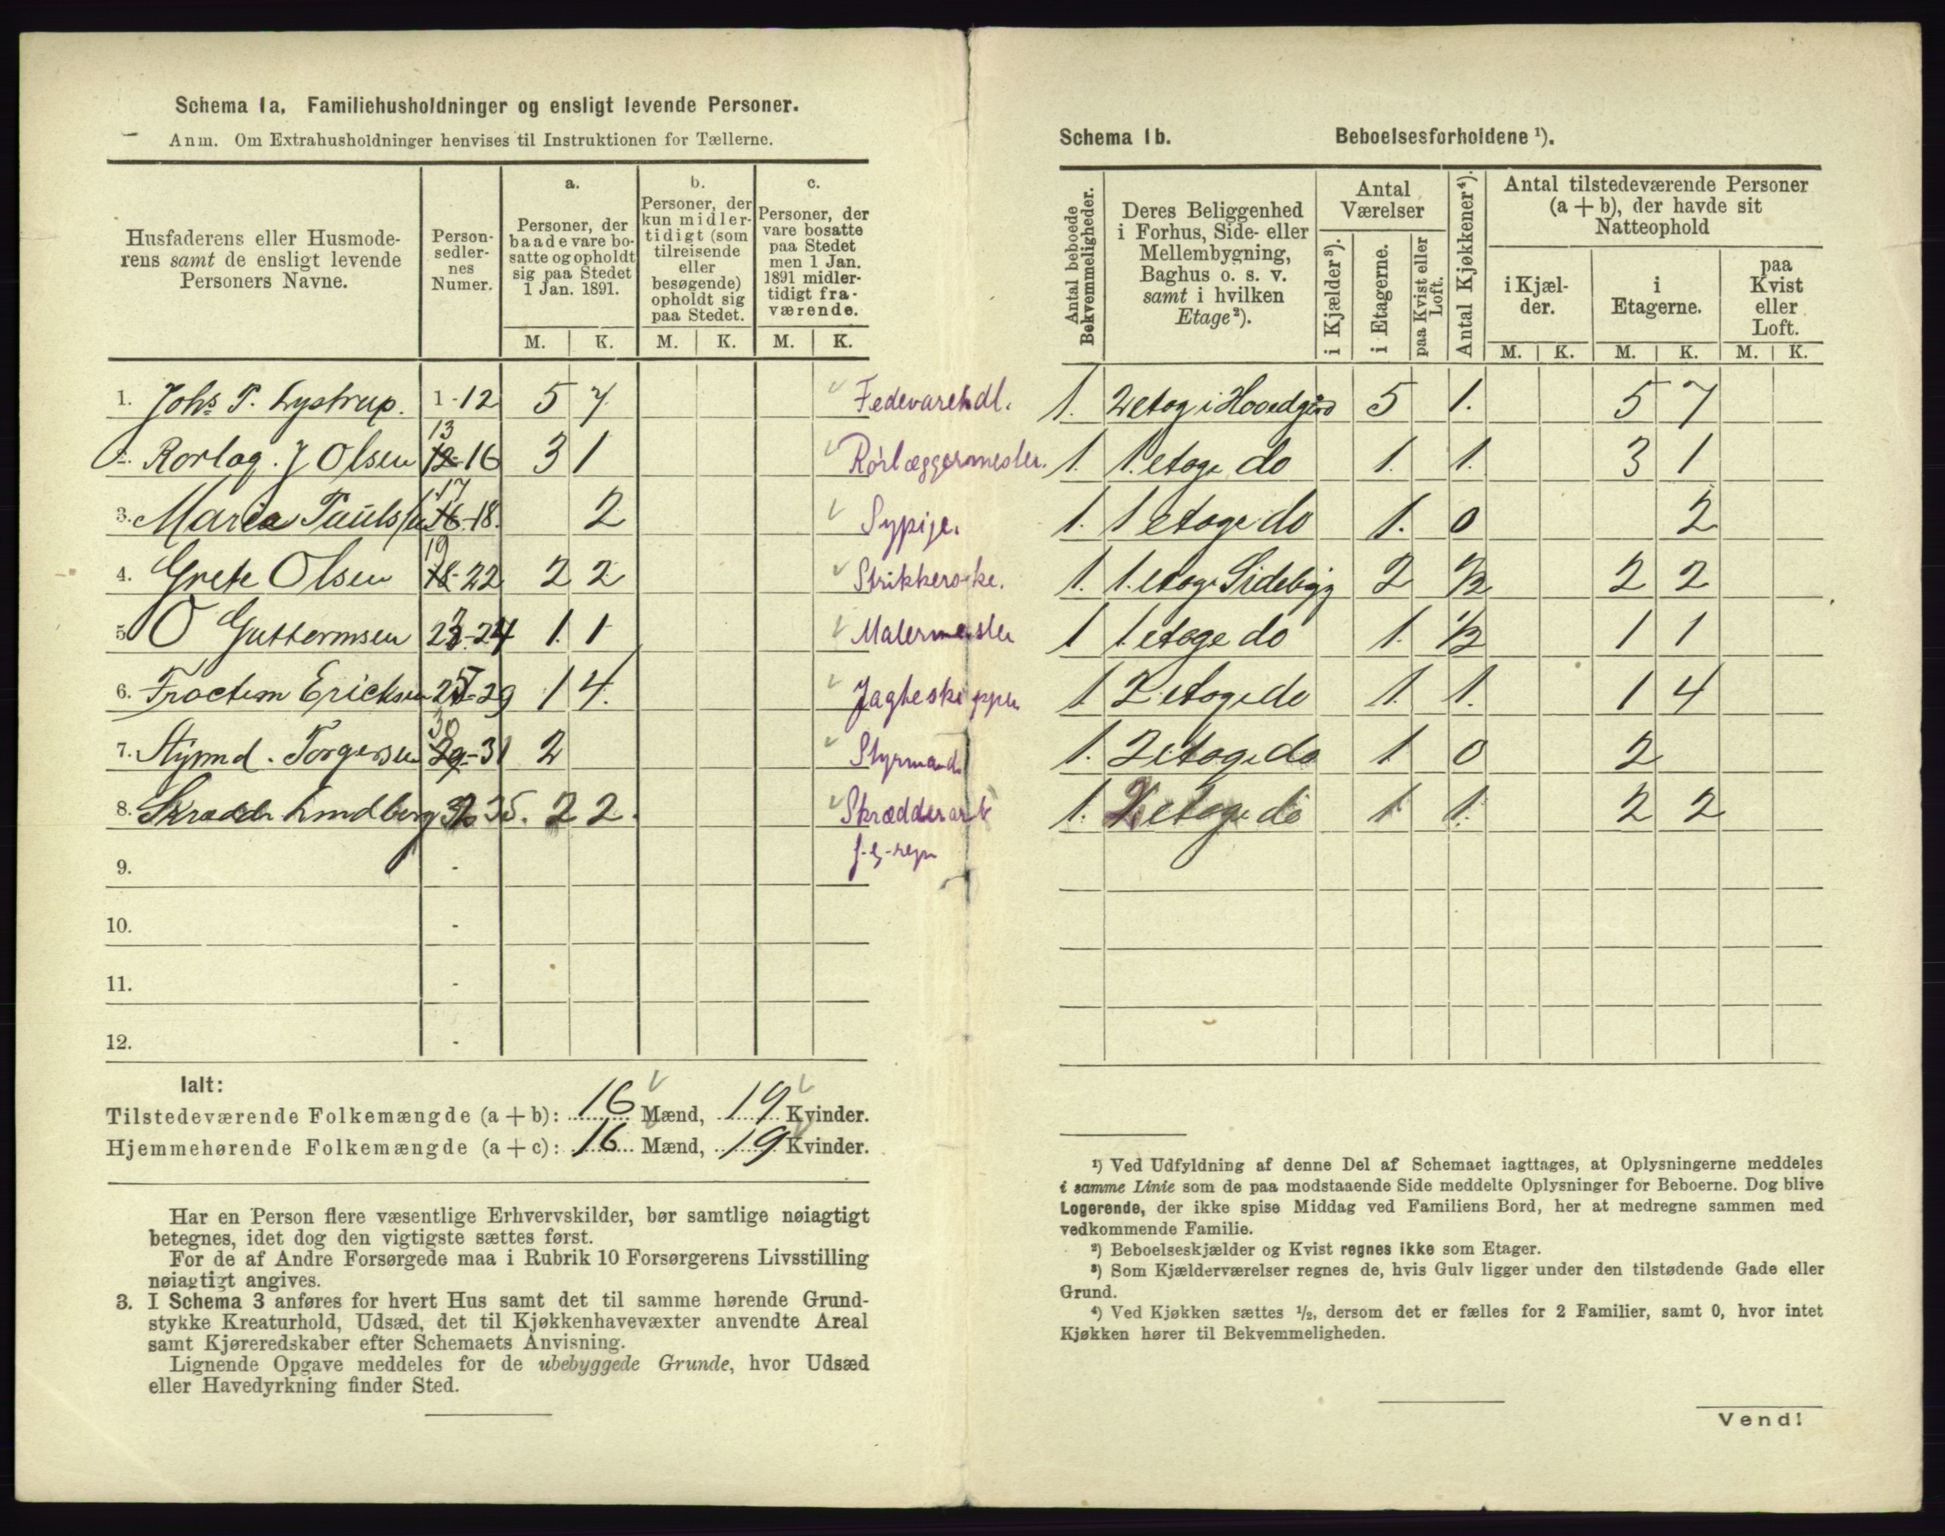 Schema 1a, Familiehusholdninger og ensligt levende Personer.
Anm. Om Extrahusholdninger henvises til Instruktionen for Tællerne.
Husfaderens eller Husmode-
rens samt de ensligt levende
Personers Navne.
Person-
sedler-
nes
Numer.
a.
Personer, der
baade vare bo-
satte og opholdt
sig paa Stedet
1 Jan. 1891.
b.
Personer, der
kun midler-
tidigt (som
tilreisende
eller
besøgende)
opholdt sig
paa Stedet.
c.
Personer, der
vare bosatte
paa Stedet
men 1 Jan.
1891 midler-
tidigt fra-
værende.
M. K. M. K. M. K.
1. Johs T. Lystrup. 1-12 5 7 Fedevarehdl.
Rorlag. J Olsen 13 12-16 3 1 Rörlæggermester.
3. Maria Paulssen 17 16-18. 2 Sypige.
4. Grete Olsen 19 18-22 2 2 Strikkerske.
5 O Guttormsen 23-24 1 1 Malermester
6. Ericksen 25-29 1 4. Jagteskipper
7. Styrmd. Torgersen 30 29-31 2 Styrmand
8. Skrædder Lindberg 32 35. 2 2. Skrædderarb
f. eg. regn
9. -
10. -
11. -
12. -
Ialt:
Tilstedeværende Folkemængde (a + b): 16 Mænd, 19 Kvinder.
Hjemmehørende Folkemængde (a + c): 16 Mænd, 19 Kvinder.
Har en Person flere væsentlige Erhvervskilder, bør samtlige nøiagtigt
betegnes, idet dog den vigtigste sættes først.
For de af Andre Forsørgede maa i Rubrik 10 Forsørgerens Livsstilling
nøiagtigt angives.
3. I Schema 3 anføres for hvert Hus samt det til samme hørende Grund-
stykke Kreaturhold, Udsæd, det til Kjøkkenhavevæxter anvendte Areal
samt Kjøreredskaber efter Schemaets Anvisning.
Lignende Opgave meddeles for de ubebyggede Grunde, hvor Udsæd
eller Havedyrkning finder Sted.
Schema 1b. Beboelsesforholdene ¹).
Antal beboede
Bekvemmeligheder.
Deres Beliggenhed
i Forhus, Side- eller
Mellembygning,
Baghus o. s. v.
samt i hvilken
Etage²).
Antal
Værelser
i Kjælder³).
i Etagerne.
paa Kvist eller
Loft.
Antal Kjøkkener⁴).
Antal tilstedeværende Personer
(a + b), der havde sit
Natteophold
i Kjæl-
der.
i
Etagerne.
paa
Kvist
eller
Loft.
M. K. M. K. M. K.
1. 2 etag i Hovedgård 5 1. 5 7
1. 1. etage do 1. 1. 3 1
1. 1 etage do 1. 0 2
1. 1. etage Sidebyg 2 1/2 2 2
1 1 etage do 1. 1/2 1 1
1 2 etage do 1. 1. 1 4
1. 2 etage do 1 0 2
1. 2 etage do 1 1. 2 2
¹) Ved Udfyldning af denne Del af Schemaet iagttages, at Oplysningerne meddeles
i samme Linie som de paa modstaaende Side meddelte Oplysninger for Beboerne. Dog blive
Logerende, der ikke spise Middag ved Familiens Bord, her at medregne sammen med
vedkommende Familie.
²) Beboelseskjælder og Kvist regnes ikke som Etager.
³) Som Kjælderværelser regnes de, hvis Gulv ligger under den tilstødende Gade eller
Grund.
⁴) Ved Kjøkken sættes ½, dersom det er fælles for 2 Familier, samt 0, hvor intet
Kjøkken hører til Bekvemmeligheden.
Vend!